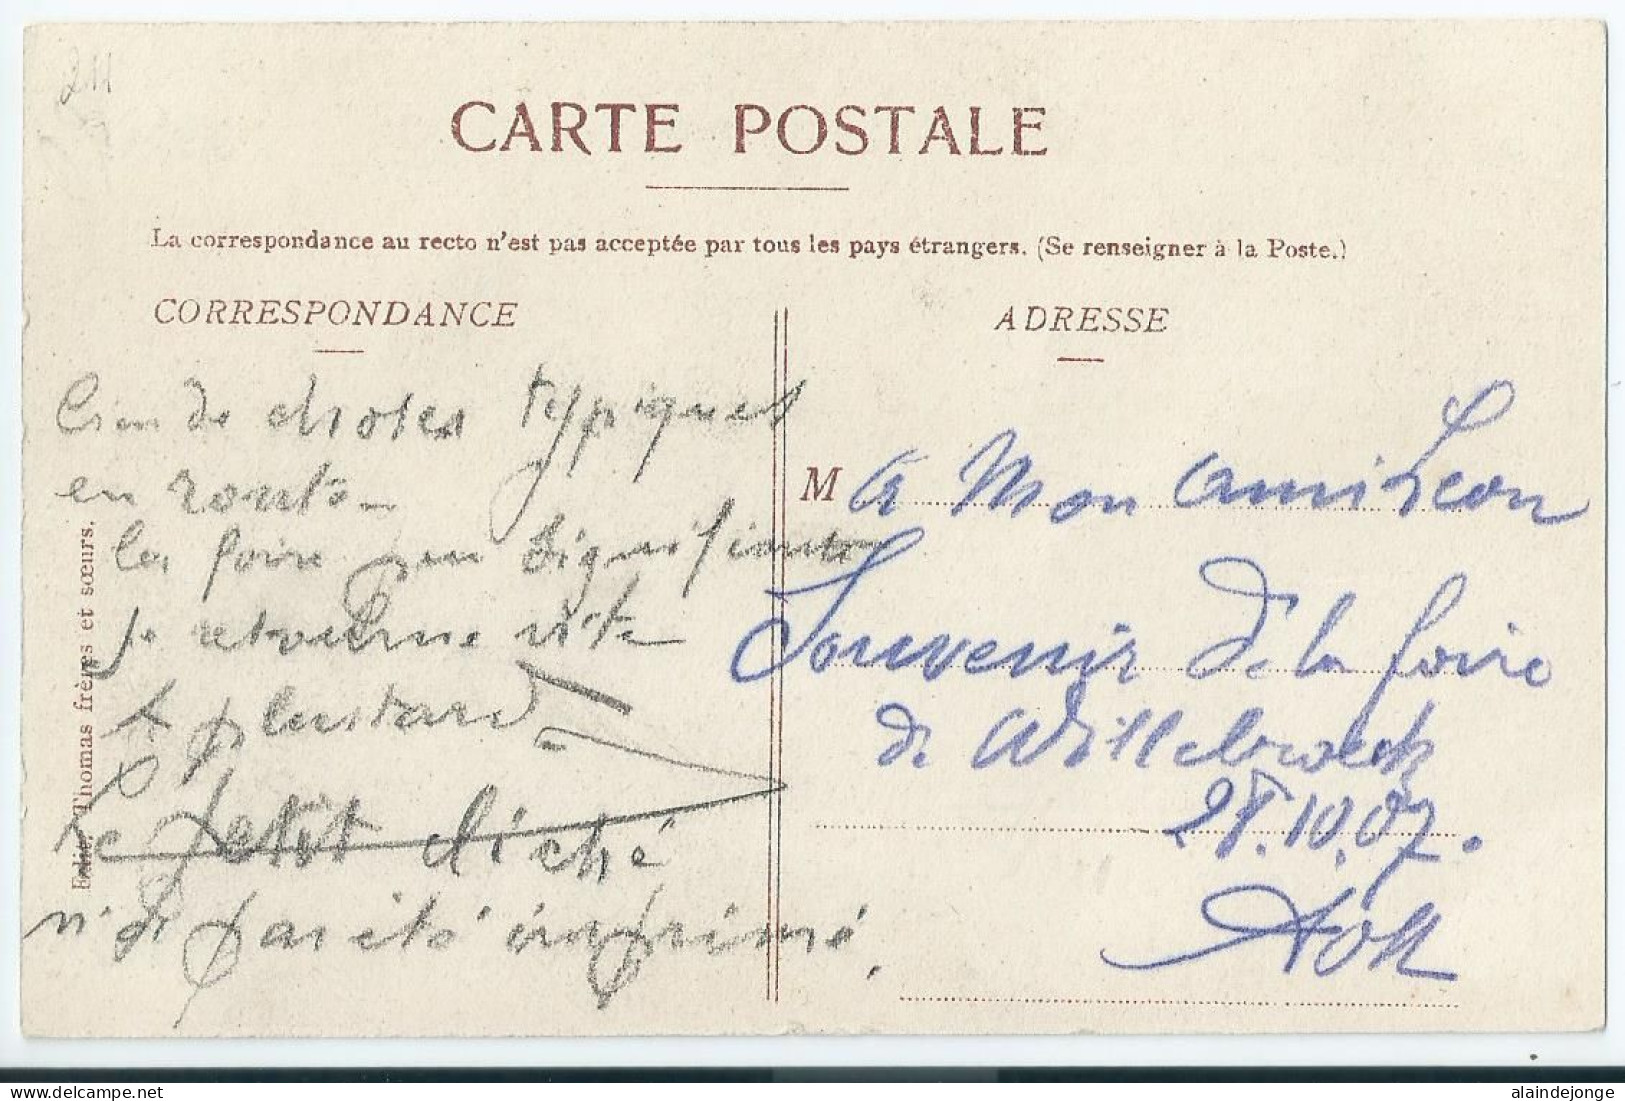 211
CARTE POSTALE
La correspondance au recto n'est pas acceptée par tous les pays étrangers. (Se renseigner à la Poste.)
CORRESPONDANCE
de choses typiques
en route -
la foire peu signifiante
je retourne vite
A plus tard
Le petit cliché
n'a pas été imprimé.
Edit. Thomas frères et sœurs.
ADRESSE
M a Mon ami Leon
Souvenir de la foire
de Willebroeck
28.10.07.
alaindejonge